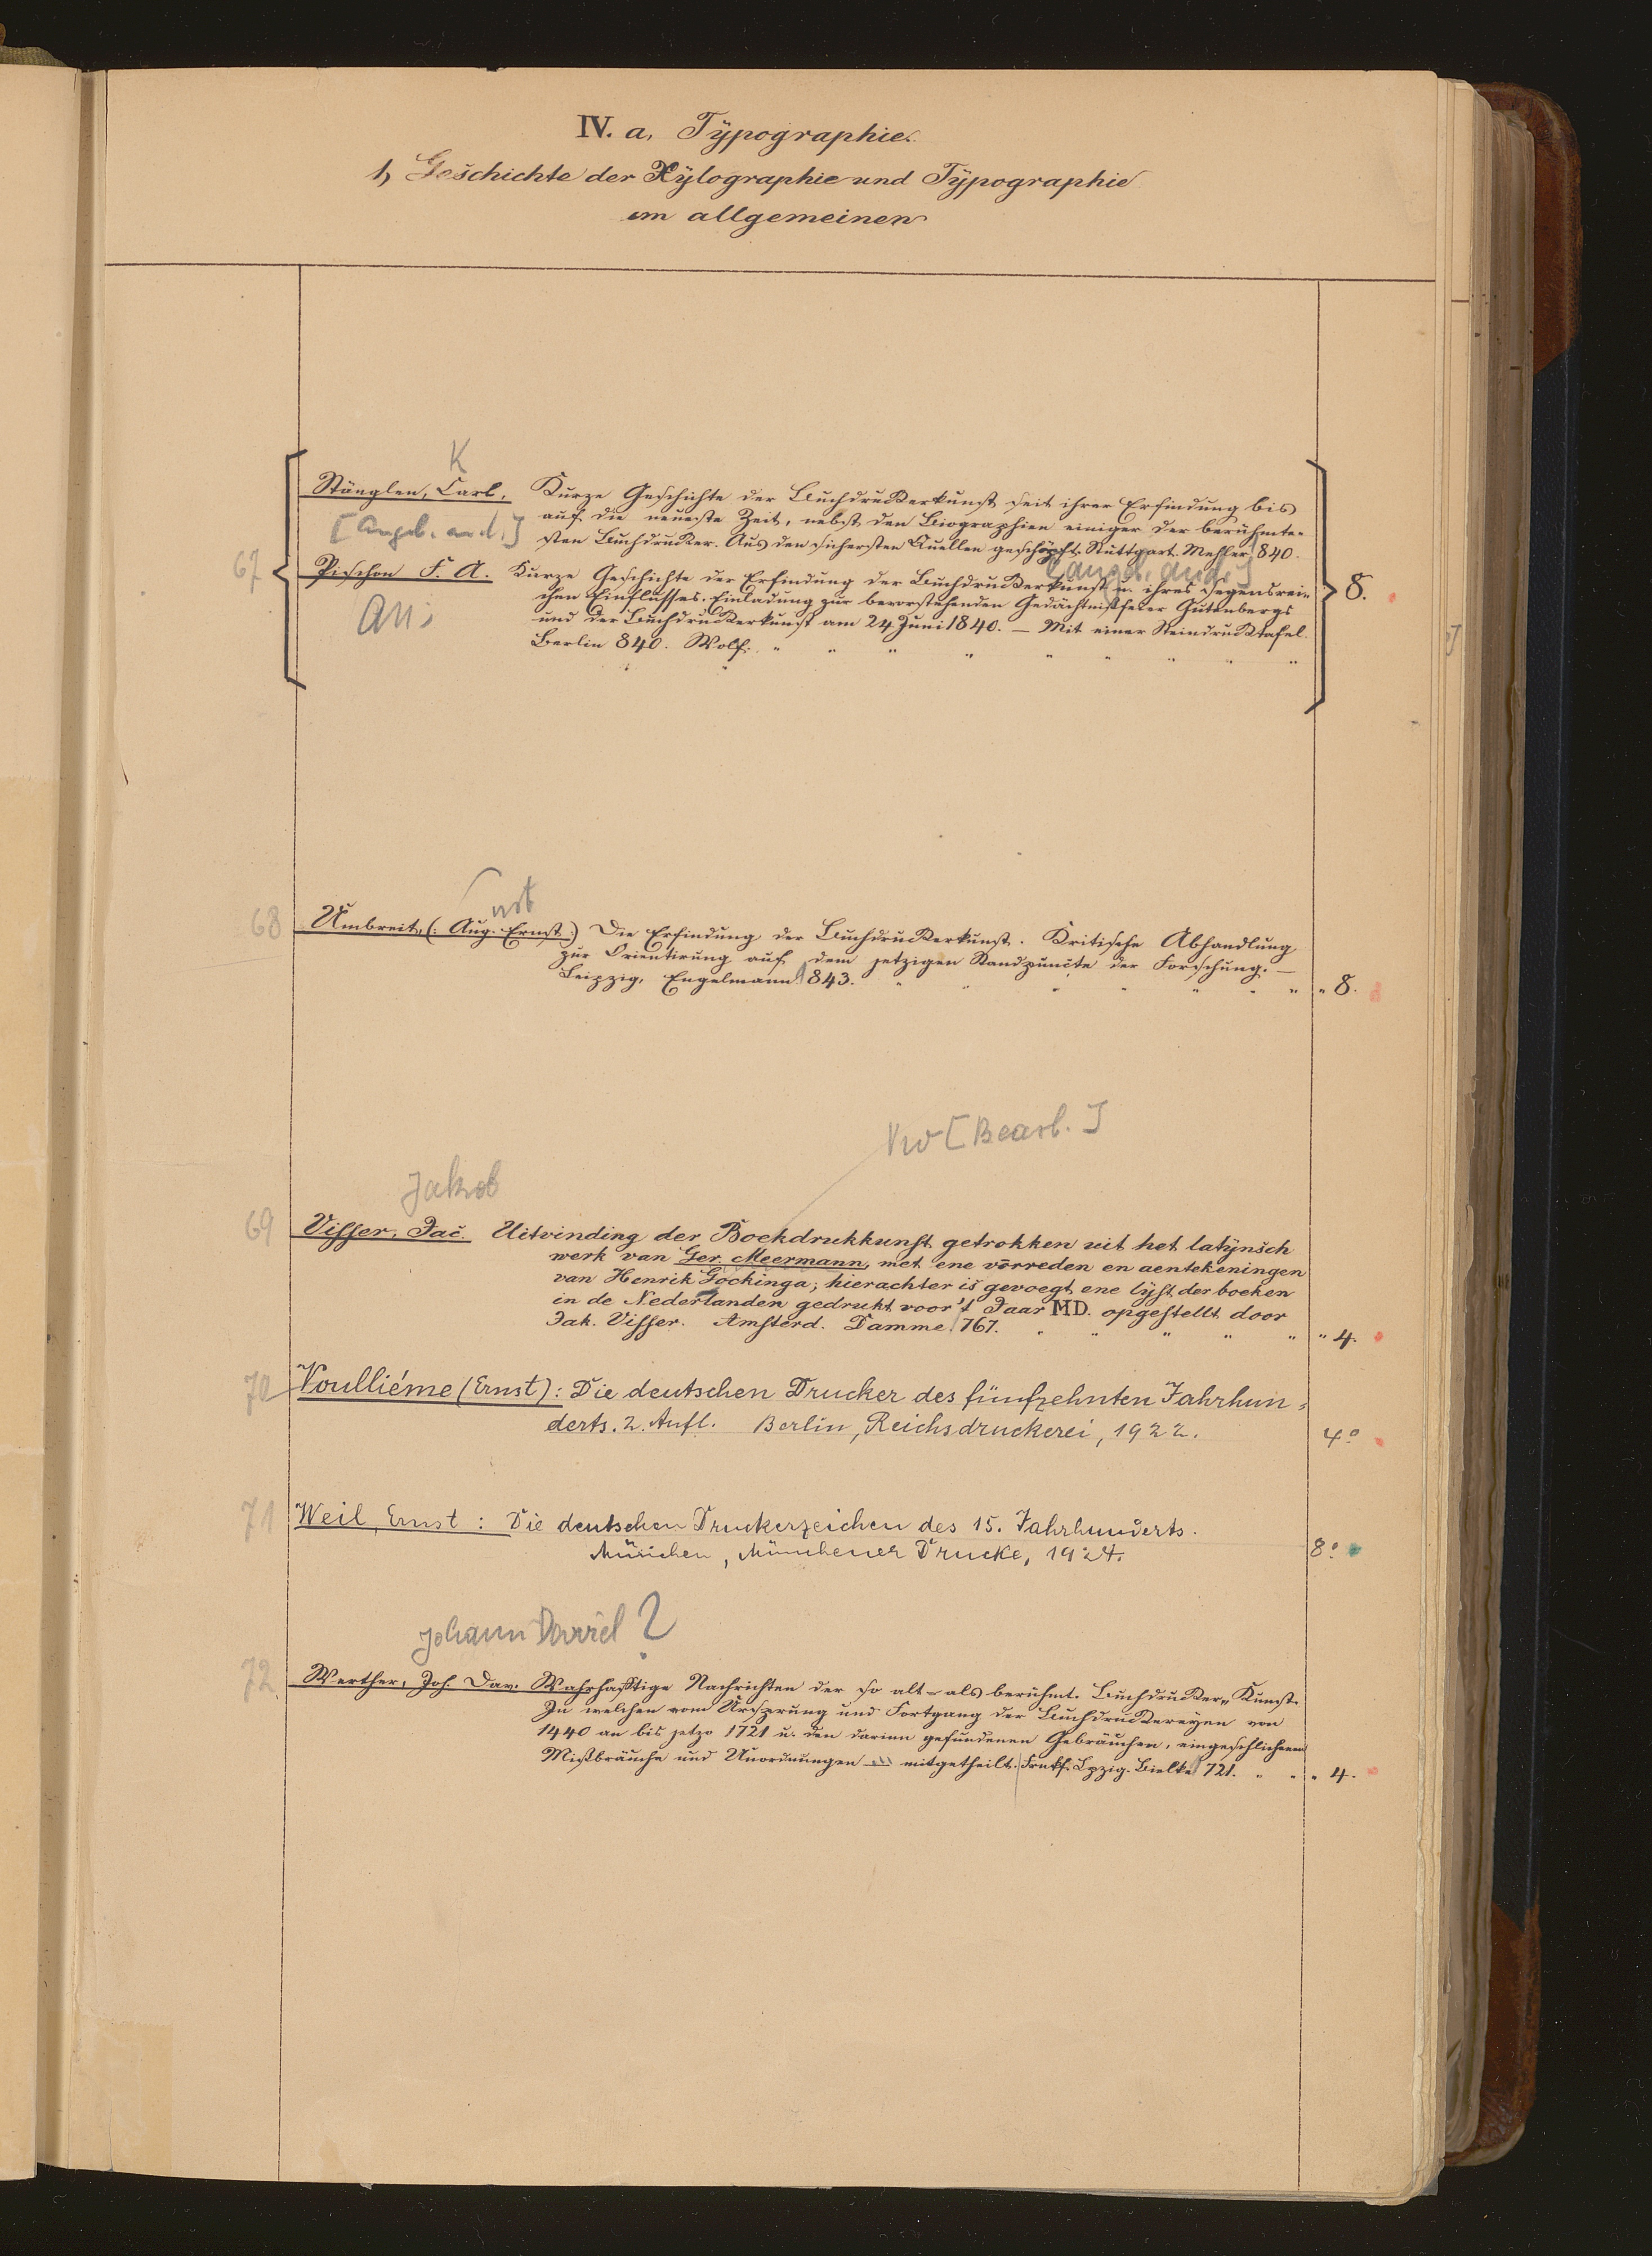 IV. a, Typographie.
1, Geschichte der Xylographie und Typographie
im allgemeinen
K
Stänglen, Carl, Kurze Geschichte der Buchdruckerkunst seit ihrer Erfindung bis
auf die neueste Zeit, nebst den Biographien einiger der berühmte-
[angeb. an d.]
sten Buchdrucker. Aus den sichersten Quellen geschöpft. Stuttgart. Metzler 840.
67
[angeb. an d.]
Pischon F. A. Kurze Geschichte der Erfindung der Buchdruckerkunst u. ihres segensrei-
chen Einflusses. Einladung zur bevorstehenden Gedächtnißfeier Gutenbergs
An:
und der Buchdruckerkunst am 24 Juni 1840. — Mit einer Steindrucktafel.
Berlin 840. Wolf. " " " " " " " " "
8.
nst
68 Umbreit, (: Aug. Ernst :) Die Erfindung der Buchdruckerkunst. Kritische Abhandlung
zur Orientirung auf dem jetzigen Standpuncte der Forschung. —
Leipzig, Engelmann 1843. " " " " " " " " 8.
Vw [Bearb.]
Jakob
69 Visser, Jac. Uitvinding der Boekdrukkunst getrokken uit het latynsch
werk van Ger. Meermann, met ene vorreden en aentekeningen
van Henrik Gockinga; hierachter is gevoegt ene lyst der boeken
in de Nederlanden gedrukt voor 't Jaar MD. opgestellt door
Jak. Visser. Amsterd. Damme 767. " " " " " " 4.
70 Voulliéme (Ernst): Die deutschen Drucker des fünfzehnten Jahrhun-
derts. 2. Aufl. Berlin, Reichsdruckerei, 1922. 4°
71 Weil, Ernst: Die deutschen Druckerzeichen des 15. Jahrhunderts.
München, Münchener Drucke, 1924. 8°
Johann David ?
72. Werther, Joh. Dav. Wahrhafftige Nachrichten der so alt- als berühmt. Buchdrucker-Kunst.
In welchen vom Ursprung und Fortgang der Buchdruckereyen von
1440 an bis jetzo 1721 u. den darinn gefundenen Gebräuchen, eingeschlichenen
Mißbräuche und Unordnungen mitgetheilt. Frnkf. Lpzig. Bielke 721. " " " 4.